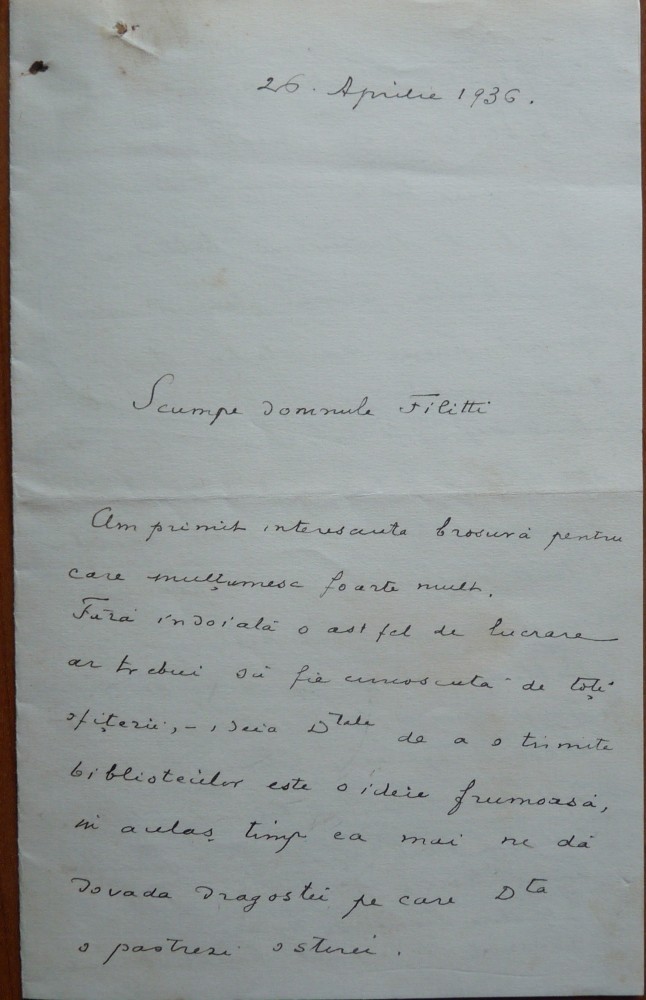 26. Aprilie 1936.
Scumpe domnule Filitti
Am primit interesanta brosură pentru
care mulțumesc foarte mult.
Fără îndoială o astfel de lucrare
ar trebui să fie cunoscută de toți
ofițerii, - ideia Dtale de a o trimite
bibliotecilor este o ideie frumoasă,
în acelaș timp ea mai ne dă
dovada dragostei pe care Dta
o pastrezi ostirei.